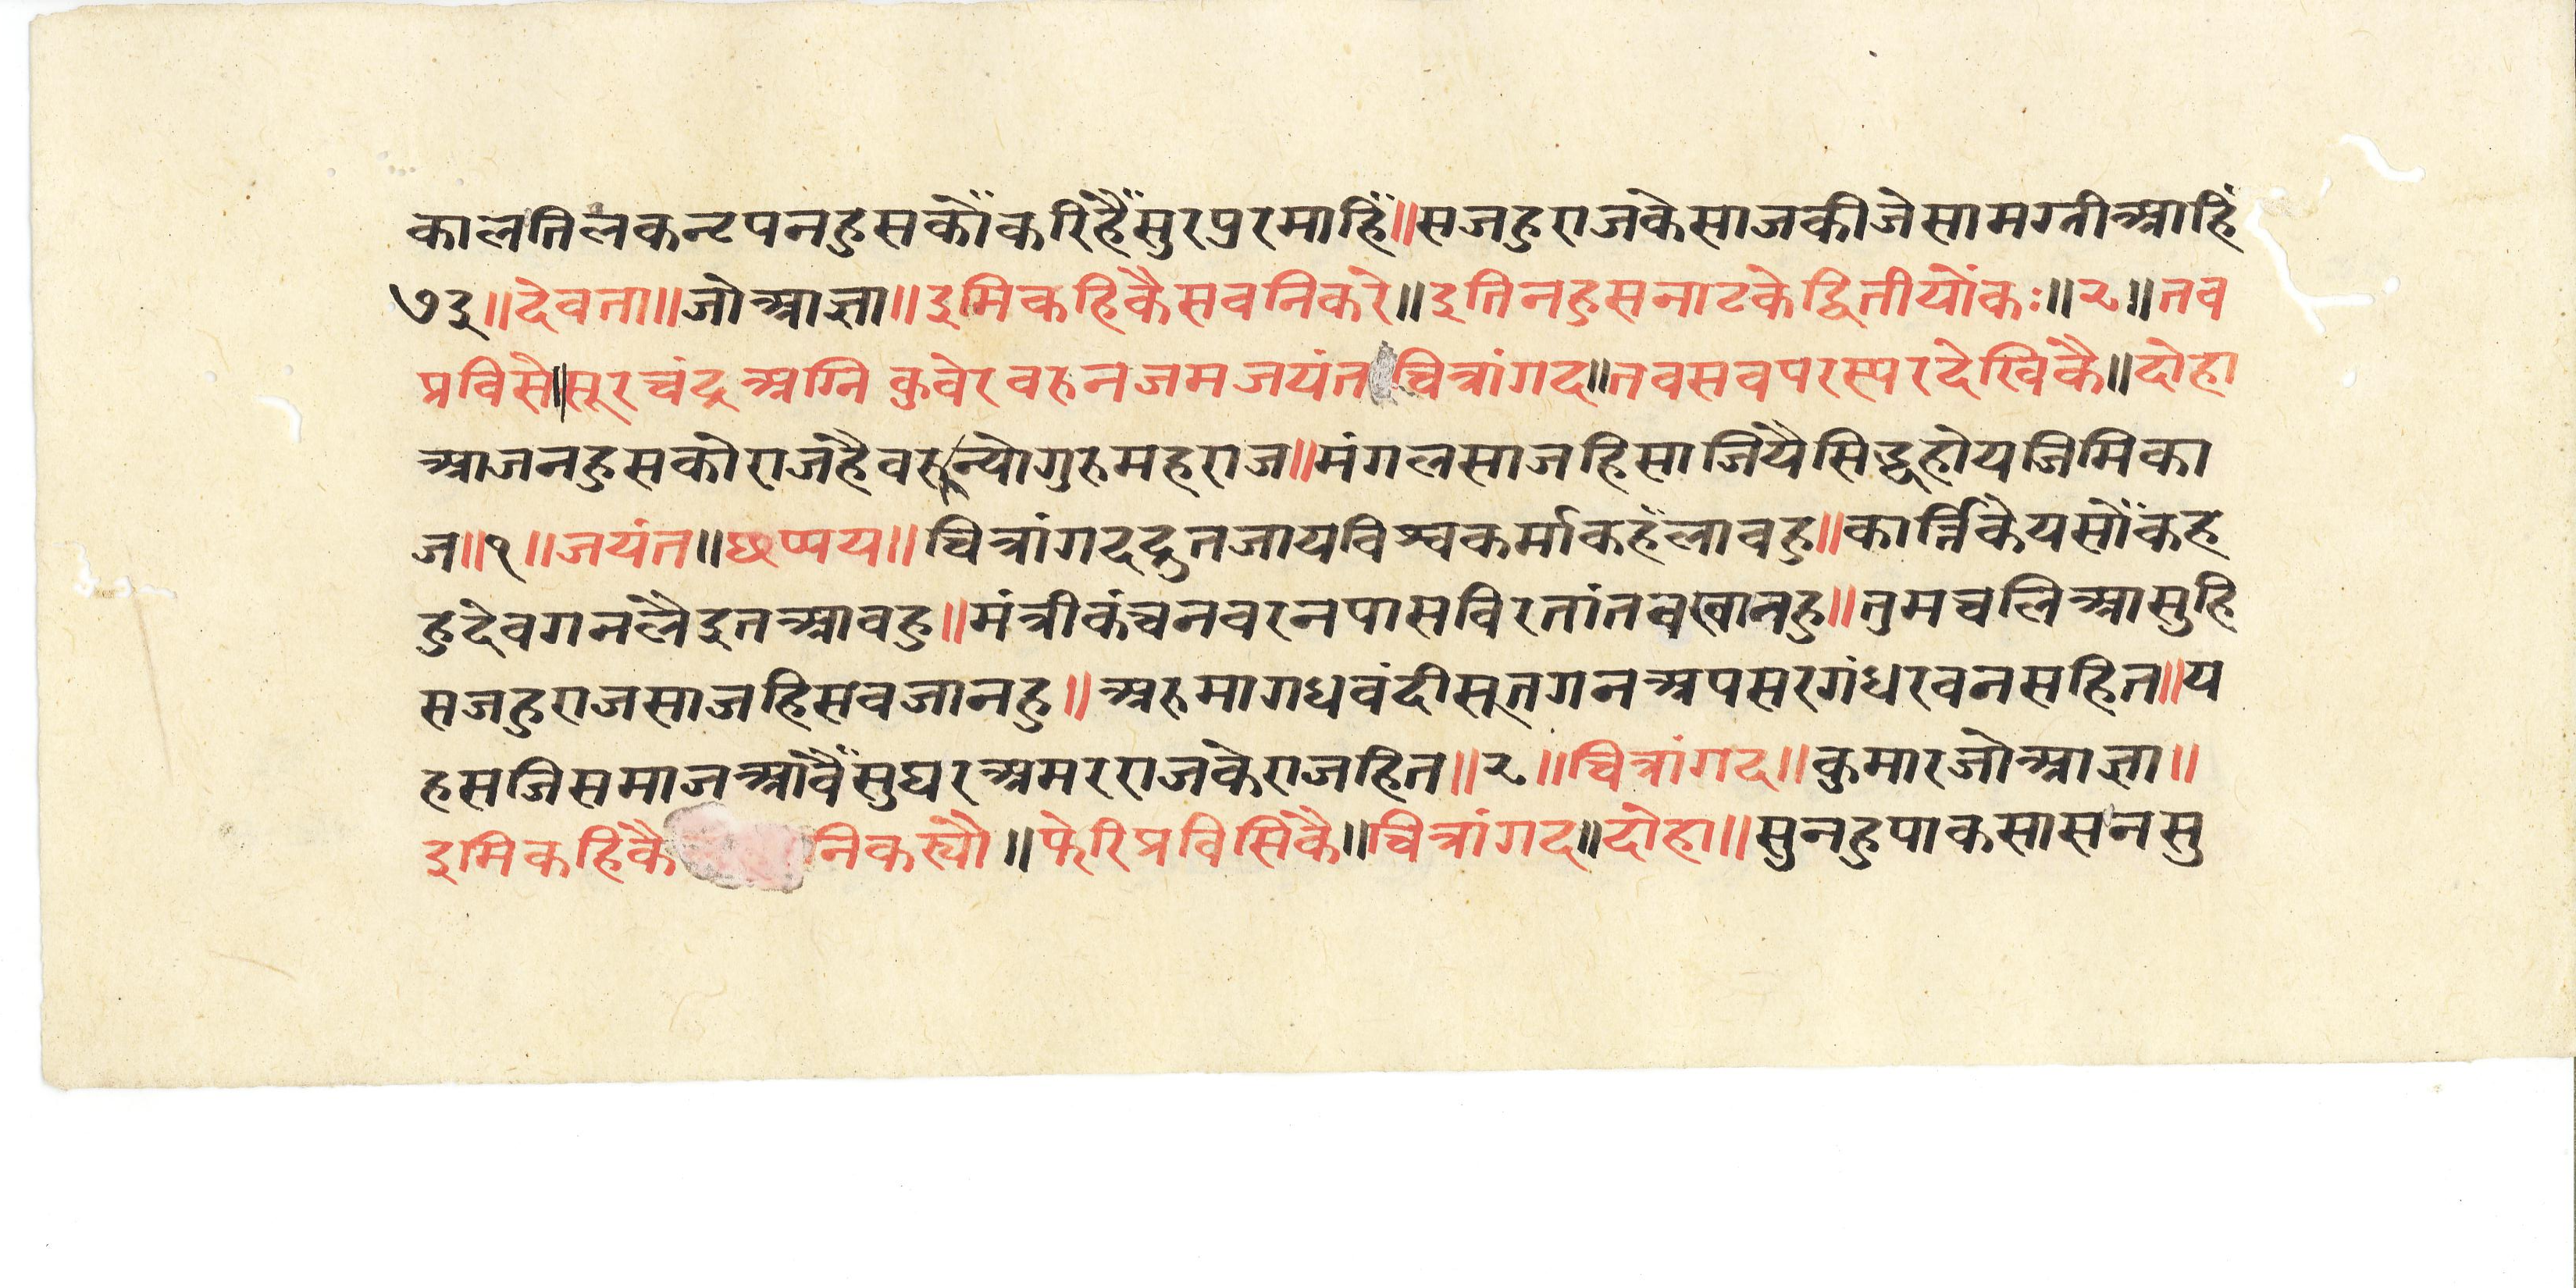 कालतिलकन्टपनहुसकौंकरिहैंसुरप्रुरमाहिं॥सजहुराजकेसाजकीजेसामग्नीआहिं
७३॥देवता॥जोआज्ञा॥इमिकहिकैसवनिकरे॥इतिनहुसनाटकेद्वितीयोंकः॥२॥तव
प्रविसे॥सूरचंद्रअग्नि कुवेरवरुनजमजयंतचित्रांगद॥तवसवपरस्परदेखिकै॥दोहा
आजनहुसकोराजहैवरुन्योगुरुमहराज॥मंगलसाजहिसाजियैसिद्धहोयजिमिका
ज॥१॥जयंत॥छप्पय॥चित्रांगदद्रुतजायविश्वकर्माकहँलावहु॥कार्त्तिकेयसौंकह
हुदेवगनलैइतआवहु॥मंत्रीकंचनवरनपासविरतांतवखानहु॥तुमचलिआसुहि
सजहुराजसाजहिसवजानहु॥अरुमागधवंदीसूतगनअपसरगंधरवनसहित॥य
हसजिसमाजआवैंसुघरअमरराजकेराजहित॥२॥चित्रांगद॥कुमारजोआज्ञा॥
इमिकहिकैनिकस्यौ॥फेरिप्रविसिकै॥चित्रांगद॥दोहा॥सुनहुपाकसासनसु